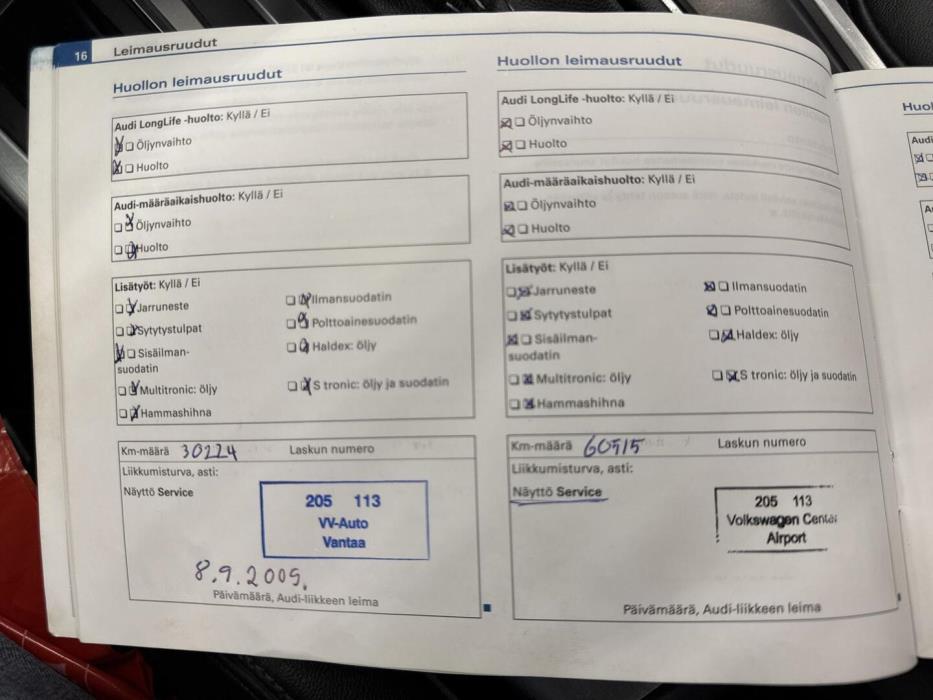 16 Leimausruudut
Huollon leimausruudut
Audi LongLife -huolto: Kyllä / Ei
Öljynvaihto
Huolto
Audi-määräaikaishuolto: Kyllä / Ei
Öljynvaihto
Huolto
Lisätyöt: Kyllä / Ei
Jarruneste
Sytytystulpat
Sisäilman-
suodatin
Multitronic: öljy
Hammashihna
Ilmansuodatin
Polttoainesuodatin
Haldex: öljy
S tronic: öljy ja suodatin
Km-määrä 30224 Laskun numero
Liikkumisturva, asti:
Näyttö Service
205 113
VV-Auto
Vantaa
8.9.2009.
Päivämäärä, Audi-liikkeen leima
Huollon leimausruudut
Audi LongLife -huolto: Kyllä / Ei
Öljynvaihto
Huolto
Audi-määräaikaishuolto: Kyllä / Ei
Öljynvaihto
Huolto
Lisätyöt: Kyllä / Ei
Jarruneste
Sytytystulpat
Sisäilman-
suodatin
Multitronic: öljy
Hammashihna
Ilmansuodatin
Polttoainesuodatin
Haldex: öljy
S tronic: öljy ja suodatin
Km-määrä 60515 Laskun numero
Liikkumisturva, asti:
Näyttö Service
205 113
Volkswagen Center
Airport
Päivämäärä, Audi-liikkeen leima